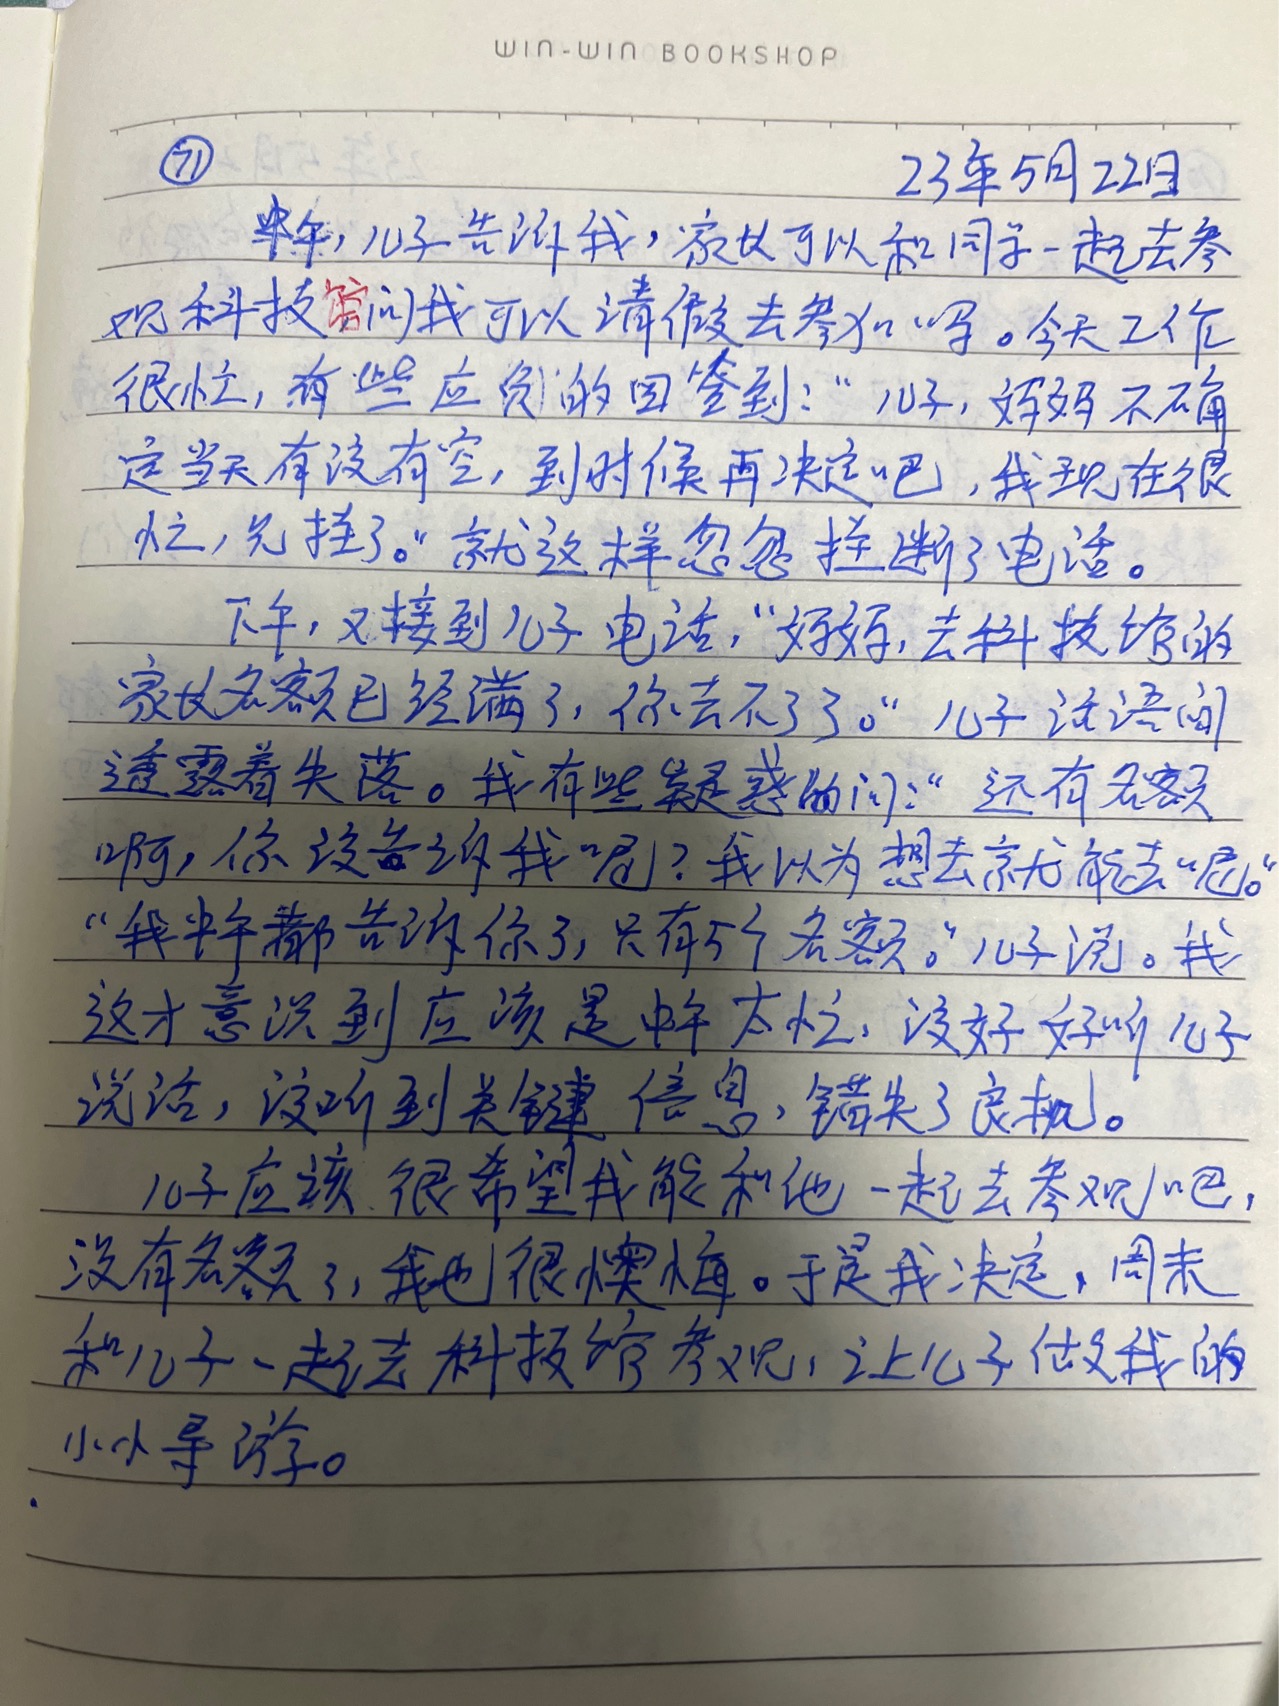 WIN-WIN BOOKSHOP
71
23年5月22日
中午，儿子告诉我，家长可以和同学一起去参
观科技馆问我可以请假去参加吗。今天工作
很忙，有些应负的回答到：“儿子，妈妈不确
定当天有没有空，到时候再决定吧，我现在很
忙，先挂了。”就这样忽忽挂断了电话。
下午，又接到儿子电话，“妈妈，去科技馆的
家长名额已经满了，你去不了了。”儿子话语间
透露着失落。我有些疑惑的问：“还有名额
啊，你没告诉我呢？我以为想去就能去呢。”
“我中午都告诉你了，只有5个名额。”儿子说。我
这才意识到应该是中午太忙，没好好听儿子
说话，没听到关键信息，错失了良机。
儿子应该很希望我能和他一起去参观吧，
没有名额了，我也很懊悔。于是我决定，周末
和儿子一起去科技馆参观，让儿子做我的
小小导游。